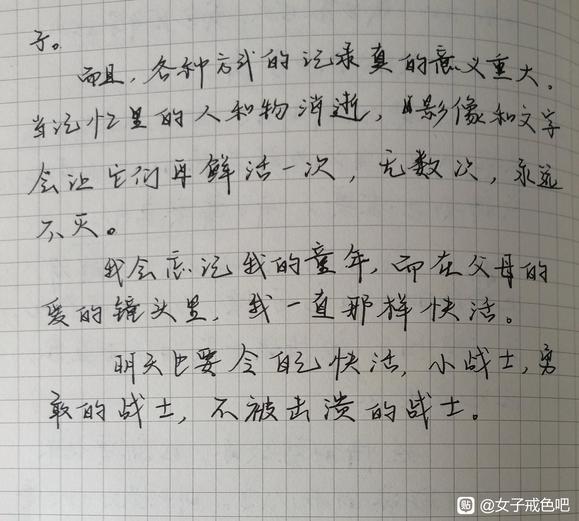 子。
而且，各种方式的记录真的意义重大。
当记忆里的人和物消逝，影像和文字
会让它们再鲜活一次，无数次，永远
不灭。
我会忘记我的童年，而在父母的
爱的镜头里，我一直那样快活。
明天也要令自己快活，小战士，勇
敢的战士，不被击溃的战士。
贴 @女子戒色吧